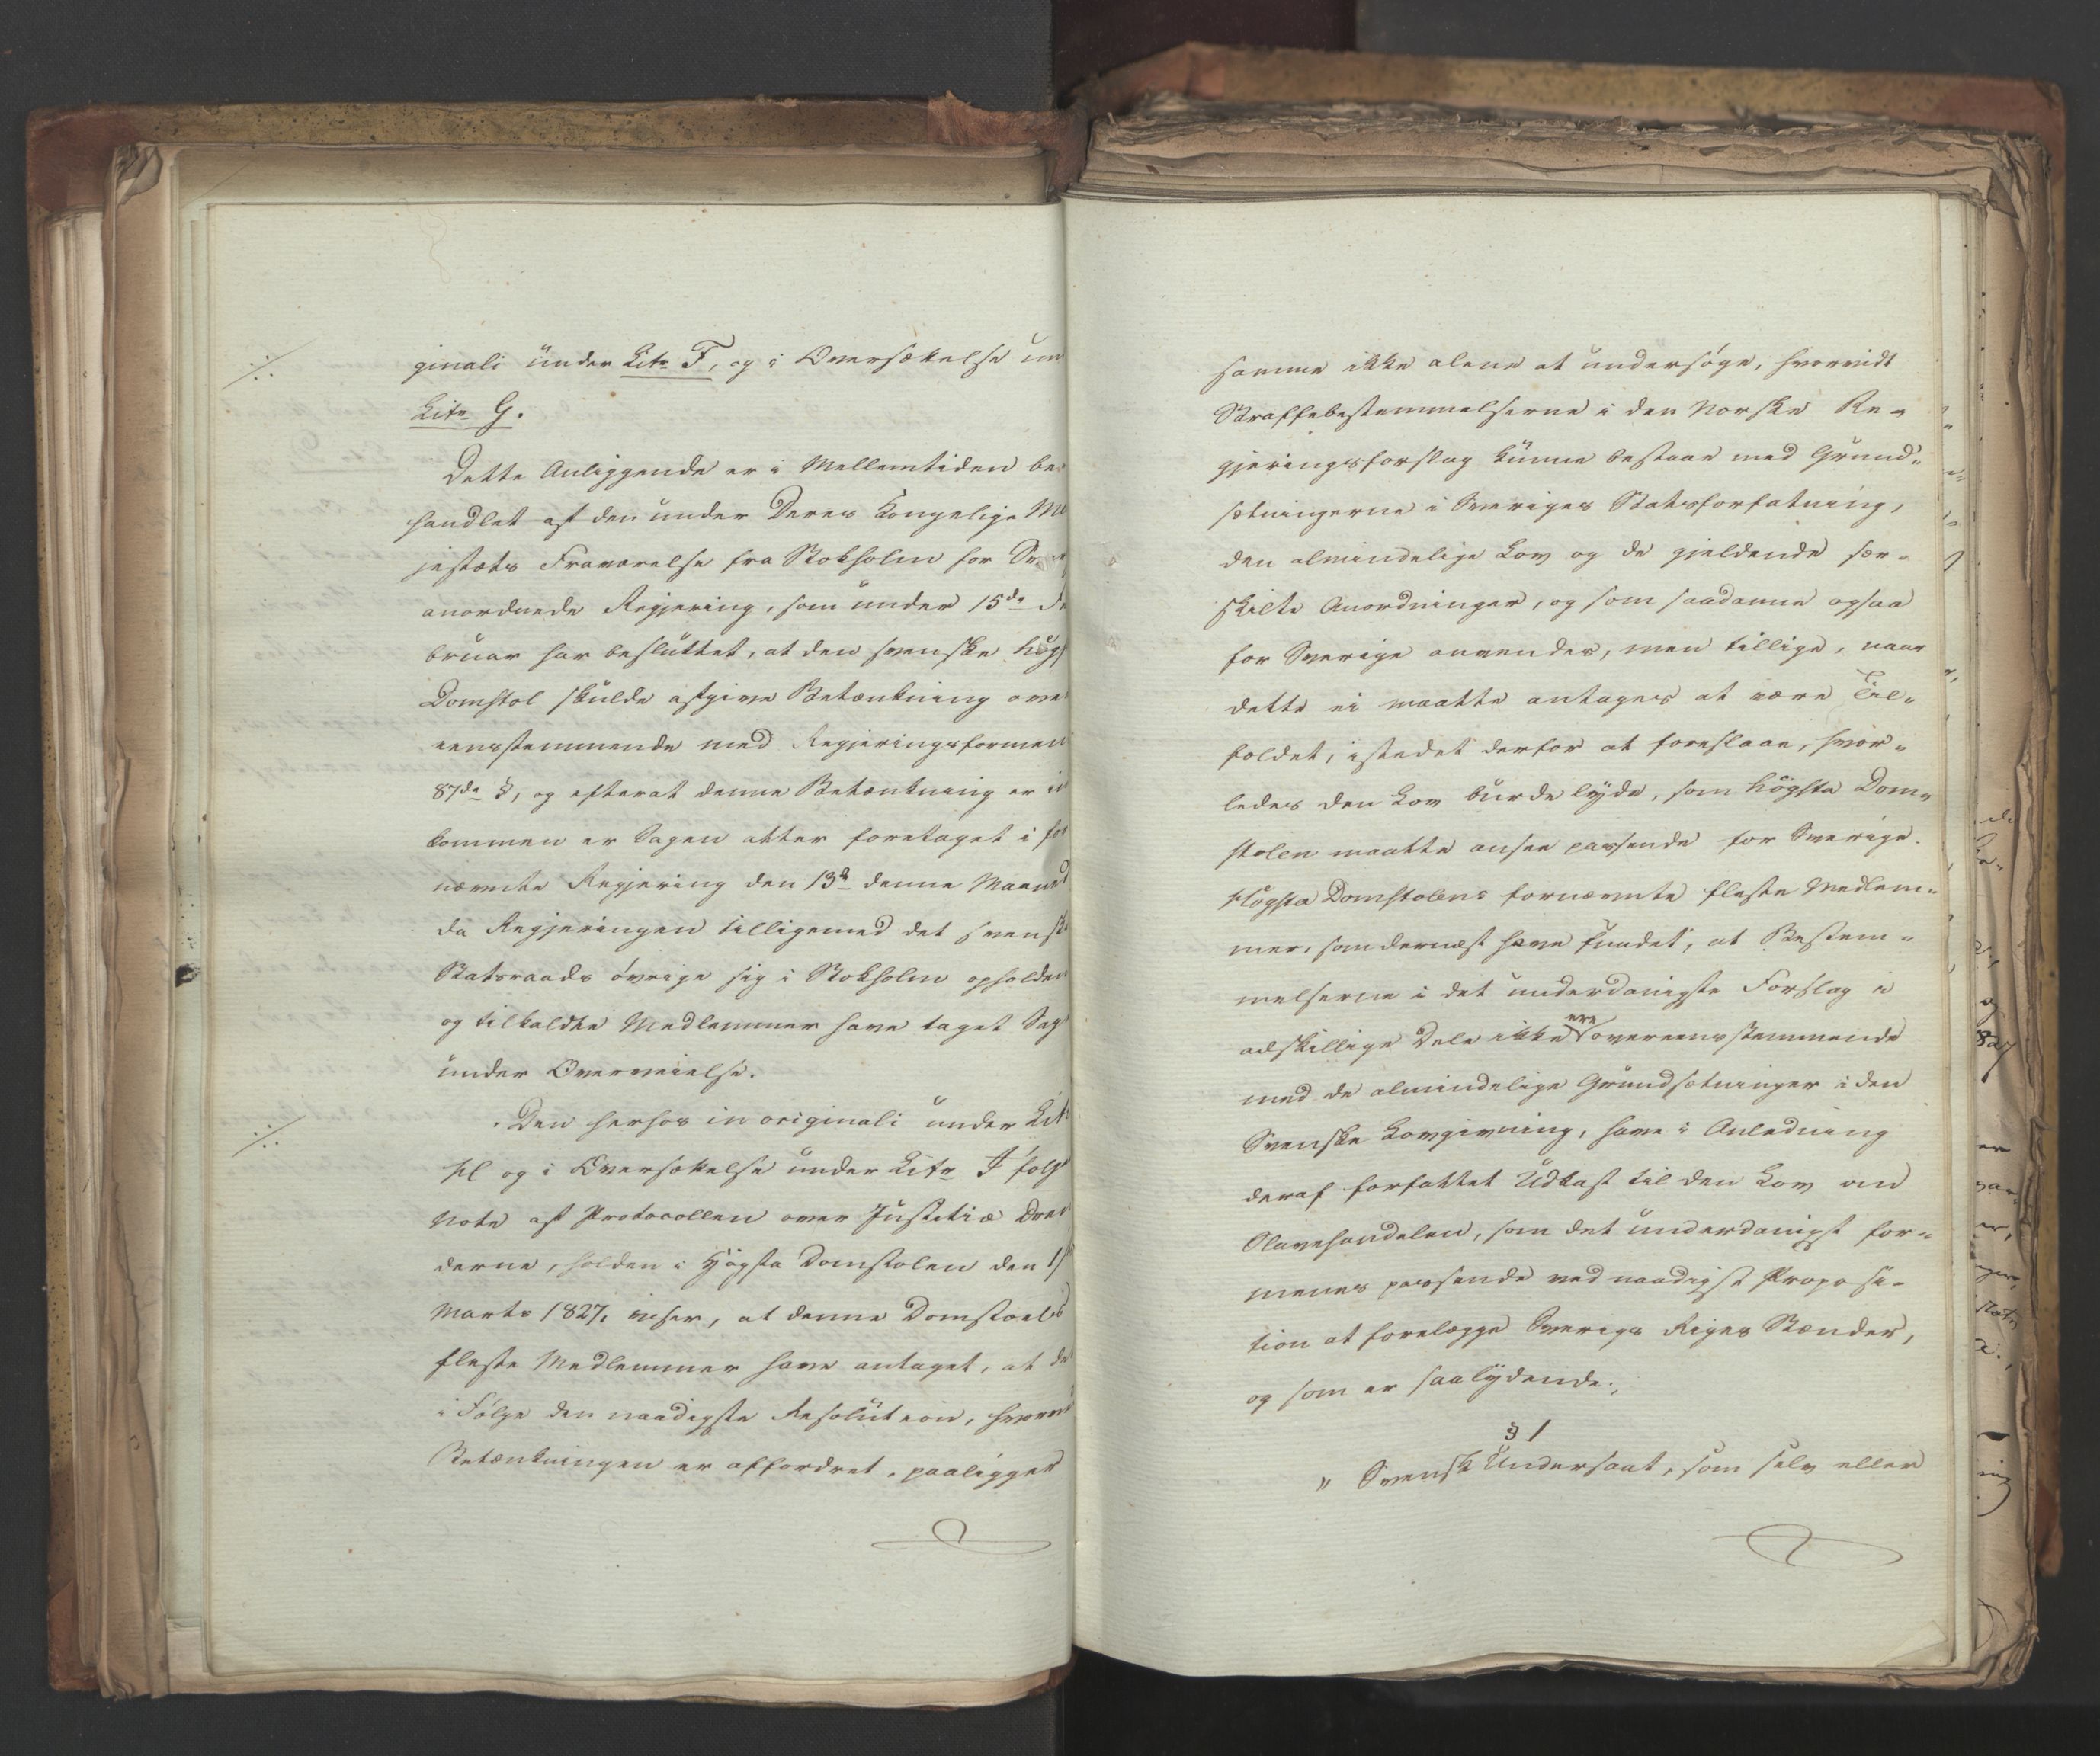 ginali under Litr F, og i Oversættelse un
Litr G.
Dette Anliggende er i Mellemtiden be-
handlet af den under Deres Kongelige Ma
jestæts Fraværelse fra Stokholm for Sve
anordnede Regjering, som under 15de Fe
bruar har besluttet, at den svenske høgs
Domstol skulde afgive Betænkning over
eensstemmende med Regjeringsformen
87de §, og efterat denne Betænkning er in
kommen er Sagen atter foretaget i for
nævnte Regjering den 13d denne Maaned
da Regjeringen tilligemed det svensk
Statsraads övrige sig i Stokholm opholden
og tilkaldte Medlemmer have taget Sag
under Overveielse.
Den herhos in originali under Lit
H og i Oversættelse under Litr I følg
Note af Protocollen over Justitiæ Ären
derne, holden i Högsta Domstolen den 1
Marts 1827, viser, at denne Domstoels
fleste Medlemmer have antaget, at de
i Følge den naadigste Resolution, hvorved
Betænkningen er affordret, paaligger
samme ikke alene at undersøge, hvorvidt
Straffebestemmelserne i den Norske Re-
gjeringsforslag kunne bestaae med Grund-
sætningerne i Sveriges Statsforfatning,
den almindelige Lov og de gjeldende sær-
skilte Anordninger, og som saadanne ogsaa
for Sverige anvendes, men tillige, naar
dette ei maatte antages at være Til-
foldet, istedet derfor at foreslaae, hvor-
ledes den Lov burde lyde, som högsta Dom-
stolen maatte ansee passende for Sverige.
Högsta Domstolens fornævnte fleste Medlem-
mer, som dernæst have fundet, at Bestem-
melserne i det underdanigste Forslag i
adskillige Dele ikke ere overeensstemmende
med de almindelige Grundsætninger i den
Svenske Lovgivning, have i Anledning
deraf forfattet Udkast til den Lov om
Slavehandelen, som det underdanigst for-
menes passende ved naadigst Proposi-
tion at forelægge Sverigs Riges Stænder,
og som er saalydende.,
§ 1
" Svensk Undersaat, som selv eller